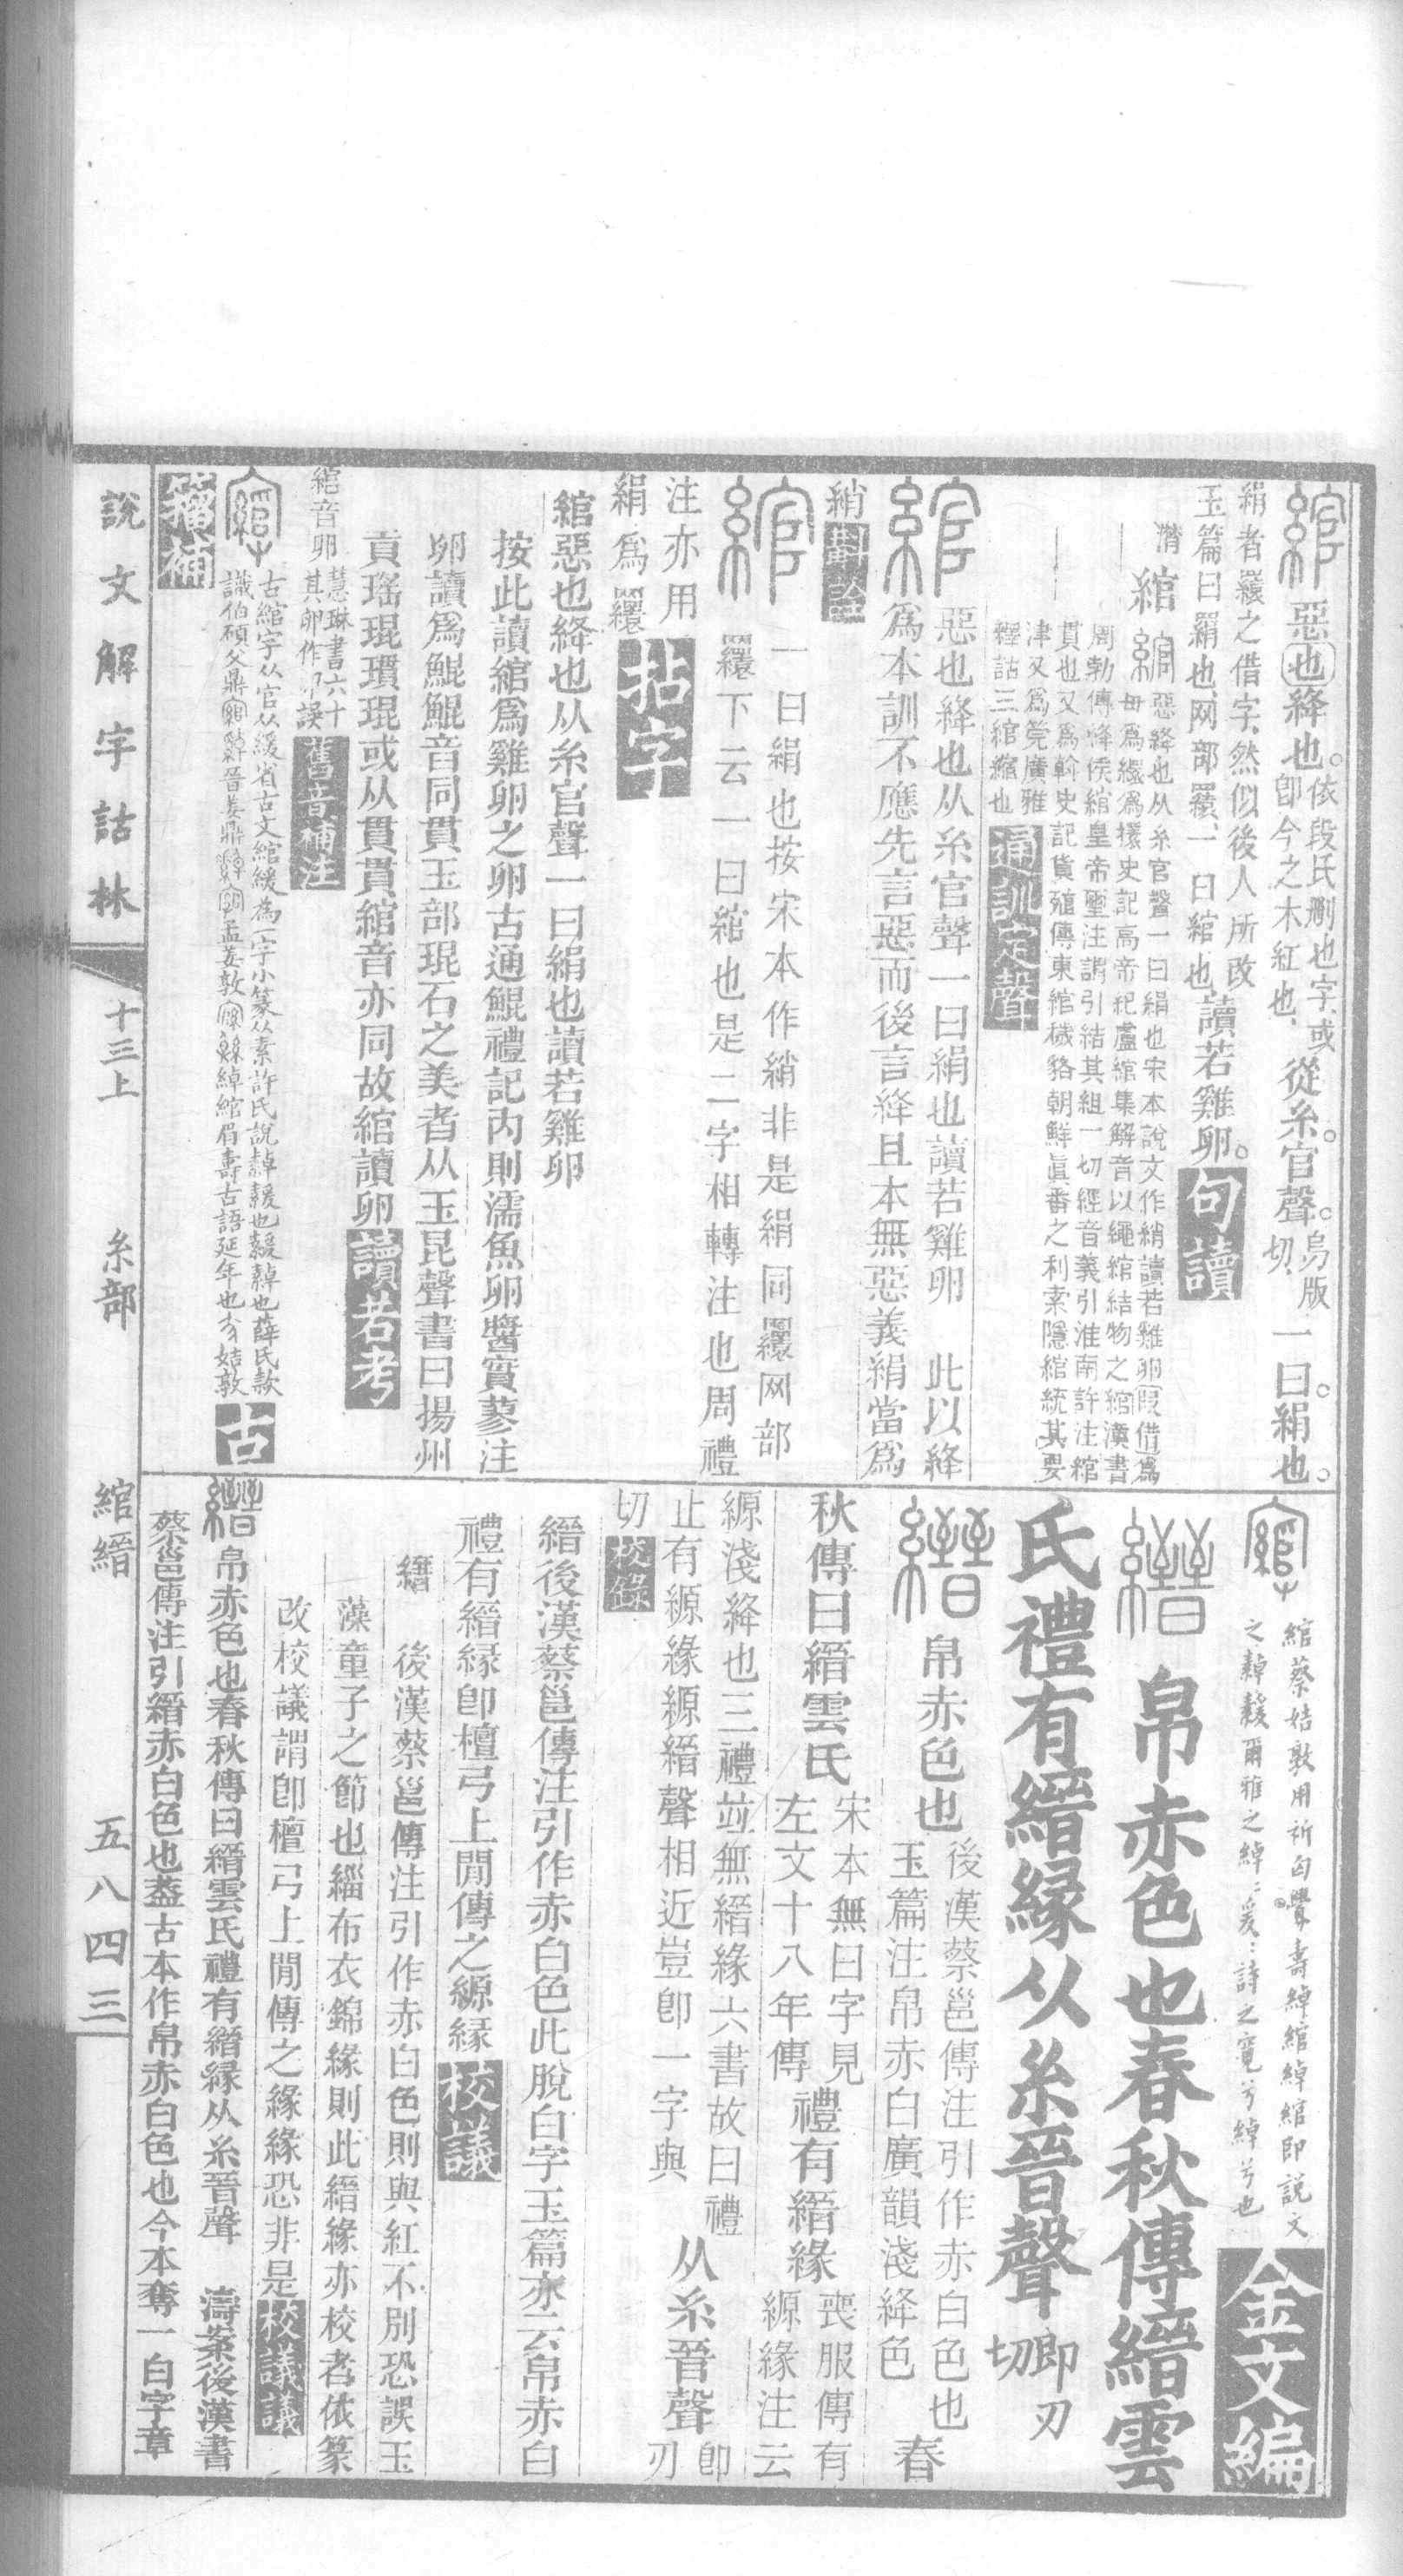 綰惡也絳也。依段氏刪也字、或
卽今之木紅也、從糸。官聲。烏版切、一曰。絹也。
絹者罥之借字、然似後人所改
玉篇曰羂也、网部罥、一曰綰也、讀若雞卵。句讀
綰 惡絳也从糸官聲一曰絹也宋本說文作綃讀若雞卵假借爲
毌爲繯爲擐史記高帝紀盧綰集解音以繩綰結物之綰漢書
周勃傳絳侯綰皇帝璽注謂引結其組一切經音義引淮南許注綰
貫也又爲斡史記貨殖傳東綰穢貉朝鮮眞番之利索隱綰統其要
津又爲筦廣雅
釋詁三綰縮也通訓定聲
綰惡也絳也从糸官聲一曰絹也讀若雞卵 此以絳
爲本訓不應先言惡而後言絳且本無惡義絹當爲
綃
綰一曰絹也按宋本作綃非是絹同繯网部
繯下云一曰綰也是二字相轉注也周禮
注亦用
絹爲繯拈字
綰惡也絳也从糸官聲一曰絹也讀若雞卵
按此讀綰爲雞卵之卵古通鯤禮記內則濡魚卵醬實蓼注
卵讀爲鯤鯤音同貫玉部琨石之美者从玉昆聲書曰揚州
貢瑤琨瓆琨或从貫貫綰音亦同故綰讀卵讀若考
綰音卵慧琳書六十
其卵作卬誤舊音補注
古綰字从官从緩省古文綰緩為一字小篆从素許氏說繛緩也緩繛也薛氏款
識伯碩父鼎晉姜鼎孟姜敦綽綰眉壽古語延年也姞敦古
籀補
綰蔡姞敦用祈匄眉壽綽綰綽綰即說文
之繛緩爾雅之綽綽爰爰詩之寬兮綽兮也金文編
縉帛赤色也春秋傳縉雲
氏禮有縉緣从糸晉聲卽刃切
縉帛赤色也後漢蔡邕傳注引作赤白色也
玉篇注帛赤白廣韻淺絳色春
秋傳曰縉雲氏宋本無曰字見
左文十八年傳禮有縉緣喪服傳有
縓緣注云
縓淺絳也三禮並無縉緣六書故曰禮
止有縓緣縓縉聲相近豈卽一字與从糸晉聲卽刃
切校錄
縉後漢蔡邕傳注引作赤白色此脫白字玉篇亦云帛赤白
禮有縉緣卽檀弓上閒傳之縓緣校議
縉 後漢蔡邕傳注引作赤白色則與紅不別恐誤玉
藻童子之節也緇布衣錦緣則此縉緣亦校者依篆
改校議謂卽檀弓上閒傳之緣緣恐非是校議議
縉帛赤色也春秋傳曰縉雲氏禮有縉緣从糸晉聲 濤案後漢書
蔡邕傳注引縉赤白色也蓋古本作帛赤白色也今本奪一白字章
說文解字詁林 十三上 糸部 綰縉 五八四三